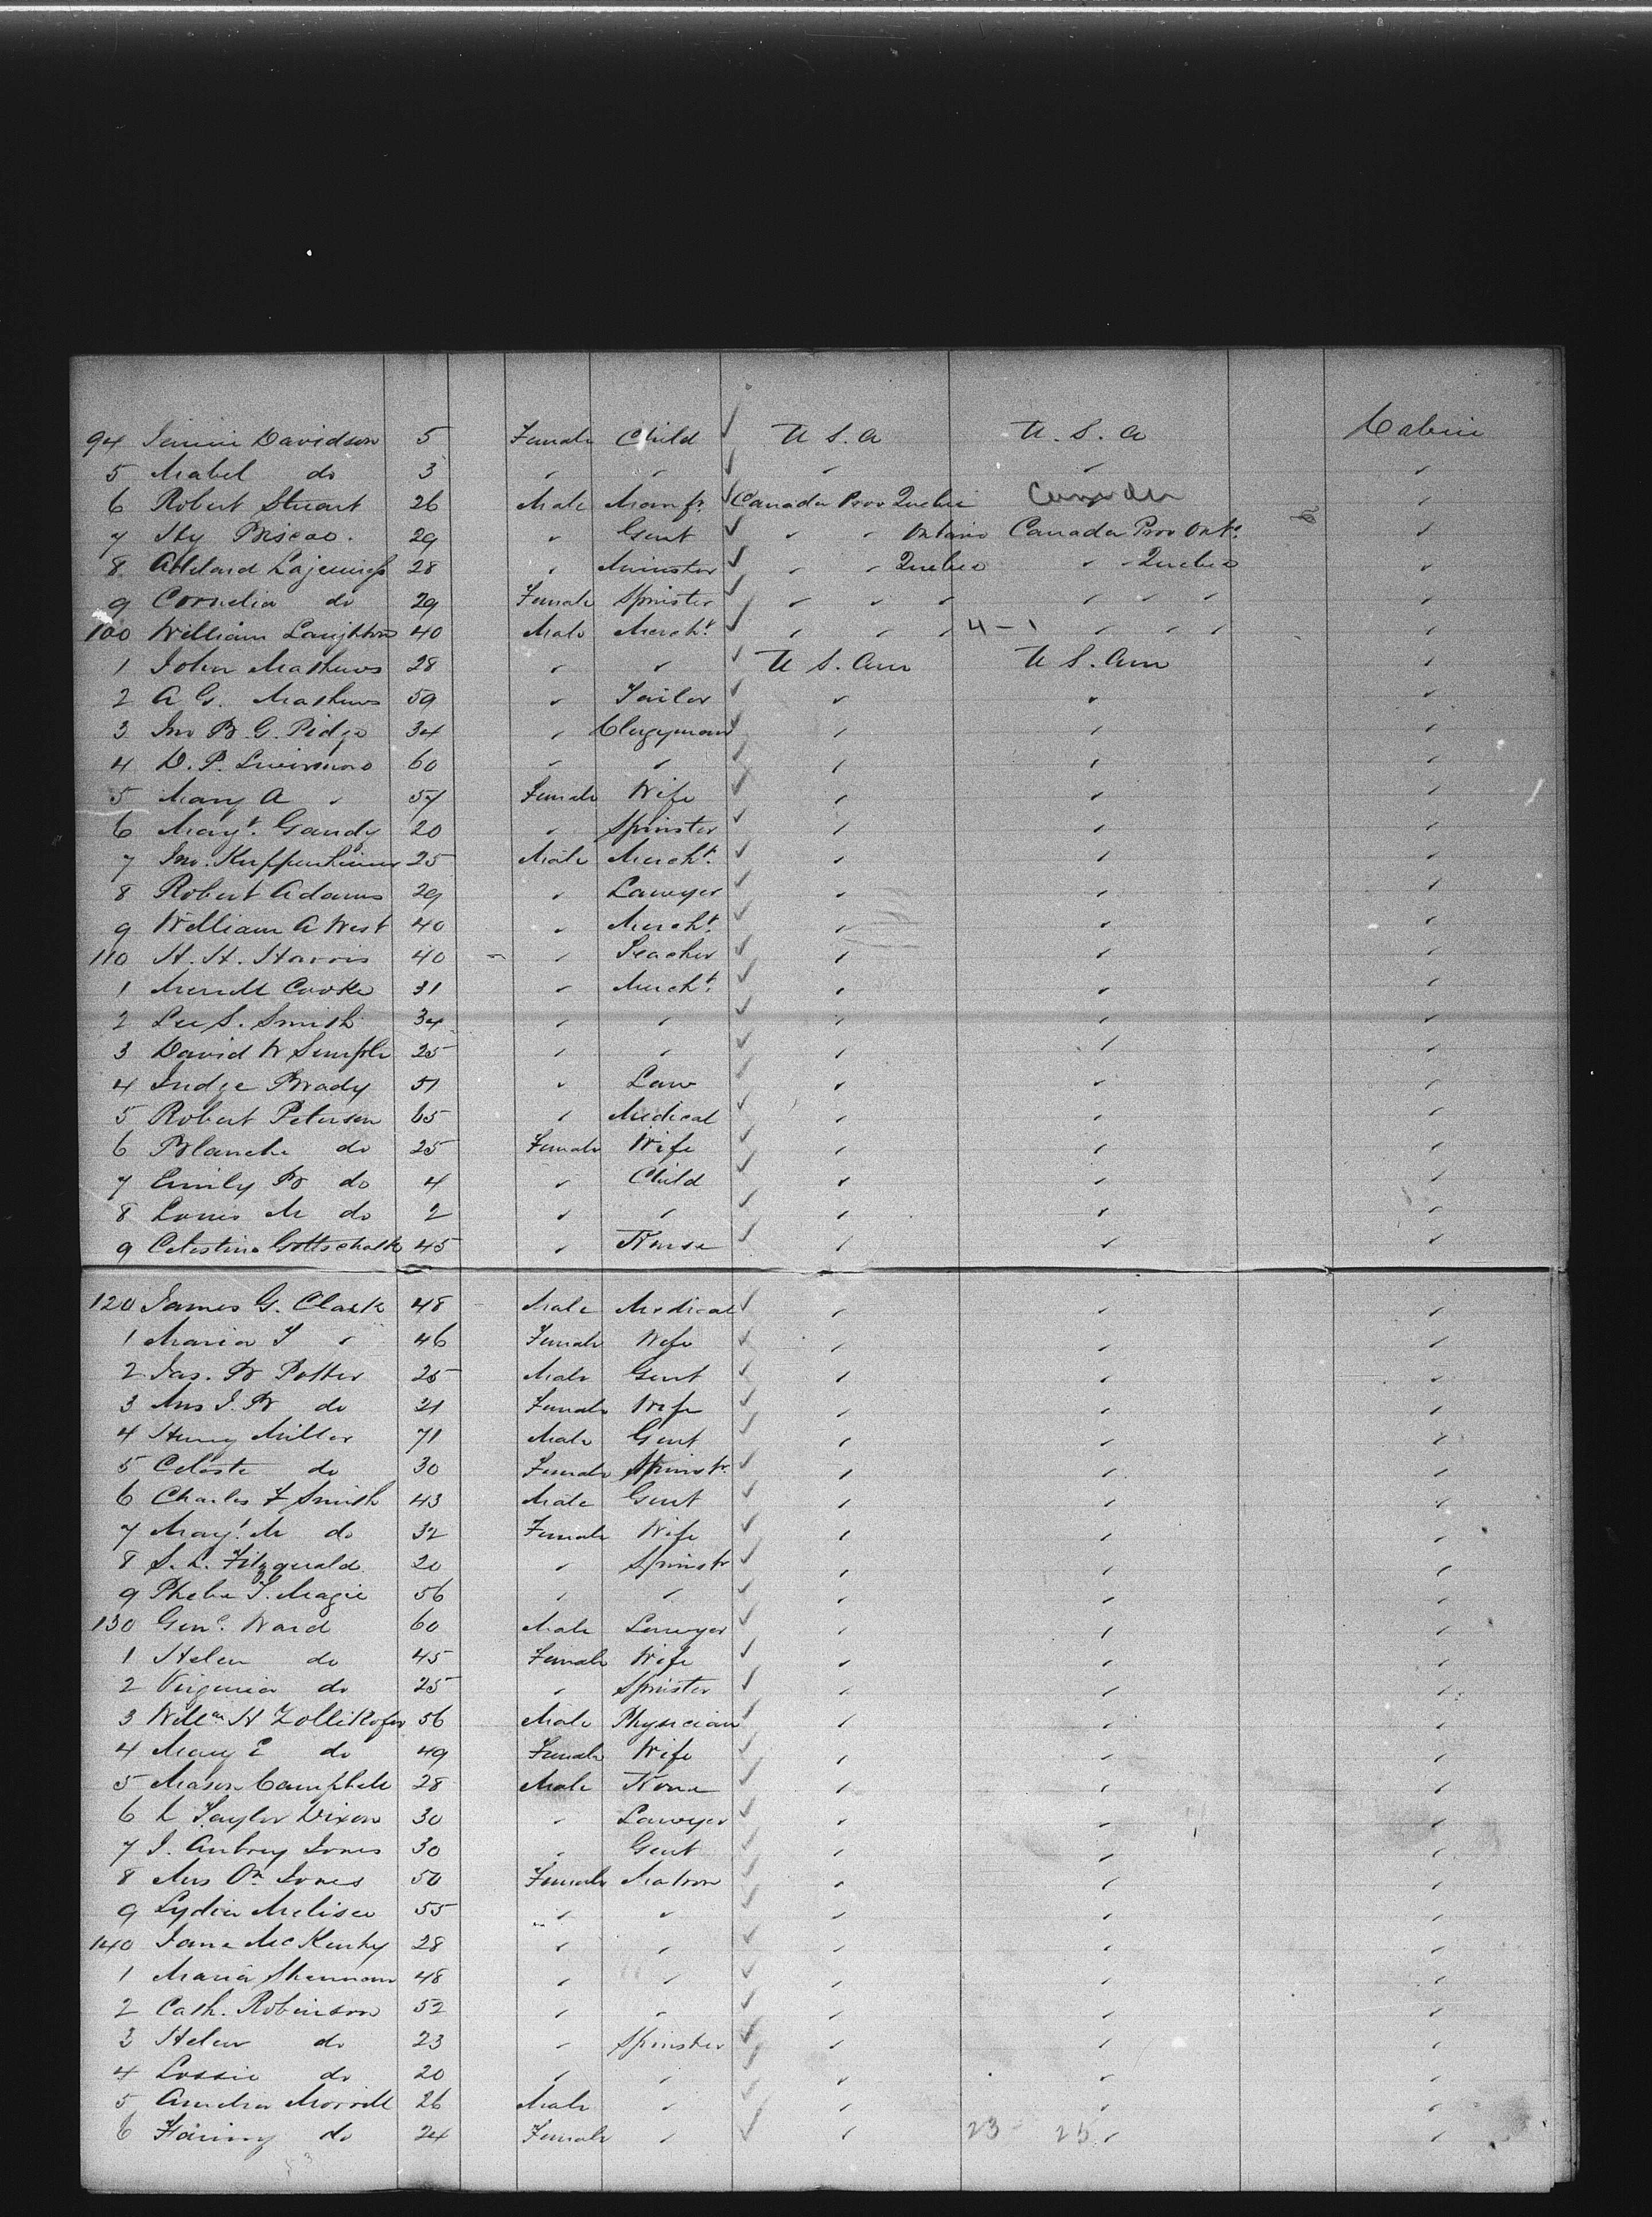 94 Jennie Davidson 5 Female Child ✓ U S. A U. S. A Cabin
5 Mabel do 3 " " ✓ " " "
6 Robert Stuart 26 Male Manfr. ✓ Canada Prov Quebec Canada "
7 Hy Briscoe. 29 " Gent ✓ " " Ontario Canada Prov Ont. "
8 28 " Minister ✓ " " Quebec " " Quebec "
9 Cornelia do 29 Female Spinster ✓ " " " " " " "
100 William Laughton 40 Male Mercht. ✓ " " " 4-1 " " " "
1 John Mathews 28 " " ✓ U S. Am U S. Am "
2 A G. Mathews 59 " Tailor ✓ " " "
3 Jno B. G. Pidge 34 " Clergyman ✓ " " "
4 D. P. Livermore 60 " " ✓ " " "
5 Mary A " 57 Female Wife ✓ " " "
6 Magt. Gandy 20 " Spinster ✓ " " "
7 Jno. Kuppenheimer 25 Male Mercht. ✓ " " "
8 Robert Adams 29 " Lawyer ✓ " " "
9 William A West 40 " Mercht. ✓ " " "
110 H. H. Harris 40 " Teacher ✓ " " "
1 Merrill Cooke 31 " Mercht. ✓ " " "
2 Lee S. Smith 34 " " ✓ " " "
3 David W Semple 25 " " ✓ " " "
4 Judge Brady 51 " Law ✓ " " "
5 Robert Peterson 65 " Medical ✓ " " "
6 Blanche do 25 Female Wife ✓ " " "
7 Emily B do 4 " Child ✓ " " "
8 Louis M do 2 " " ✓ " " "
9 Celestine Gottschalk 45 " Nurse ✓ " " "
120 James G. Clark 48 Male Medical ✓ " " "
1 Maria T " 46 Female Wife ✓ " " "
2 Jas. B Potter 25 Male Gent ✓ " " "
3 Mrs J. B do 21 Female Wife ✓ " " "
4 Henry Miller 71 Male Gent ✓ " " "
5 Celeste do 30 Female Spinstr. ✓ " " "
6 Charles F Smith 43 Male Gent ✓ " " "
7 Magt. M do 32 Female Wife ✓ " " "
8 S. L. Fitzgerald 20 " Spinstr ✓ " " "
9 Phebe T. Magie 56 " " ✓ " " "
130 Genl. Ward 60 Male Lawyer ✓ " " "
1 Helen do 45 Female Wife ✓ " " "
2 Virginia do 25 " Spinster ✓ " " "
3 Willm H Zollikofer 56 Male Physician ✓ " " "
4 Mary E do 49 Female Wife ✓ " " "
5 Mason Campbell 28 Male None ✓ " " "
6 L Taylor Dixon 30 " Lawyer ✓ " " "
7 J. Aubrey Jones 30 " Gent ✓ " " "
8 Mrs Jones 50 Female Matron ✓ " " "
9 Lydia 55 " " ✓ " " "
140 Jane 28 " " ✓ " " "
1 Maria 48 " " ✓ " " "
2 Cath. Robinson 52 " " ✓ " " "
3 Helen do 23 " Spinster ✓ " " "
4 Lossie do 20 " " ✓ " " "
5 Morrill 26 Male " ✓ " " "
6 Fanny do 24 Female " ✓ " 23 - 25 " "